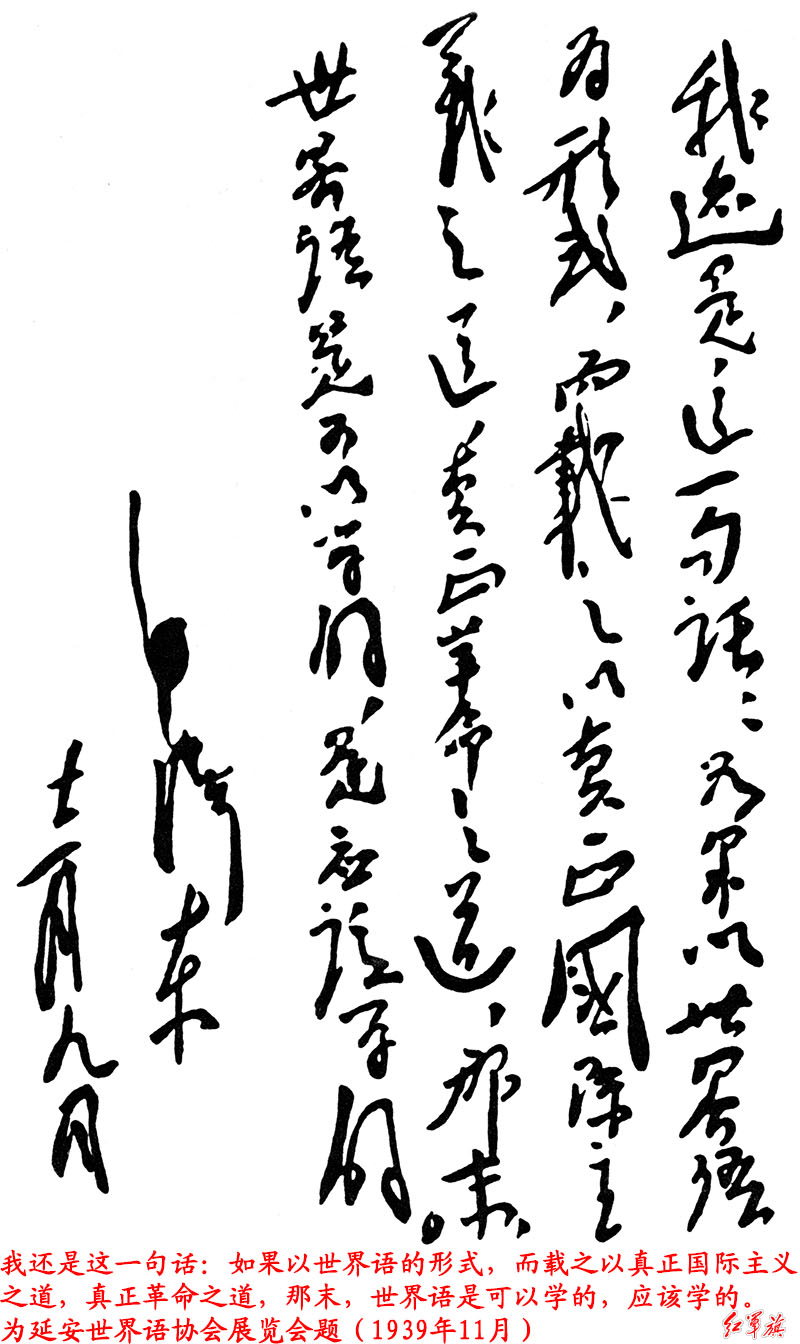 我还是，这一句話：如果以世界语
为形式，而載之以真正國际主
義之道，真正革命之道，那末，
世界语，是可以学的，是应该学的。
毛泽东
十二月九日
我还是这一句话：如果以世界语的形式，而载之以真正国际主义
之道，真正革命之道，那末，世界语是可以学的，应该学的。
为延安世界语协会展览会题（1939年11月）
红军旗